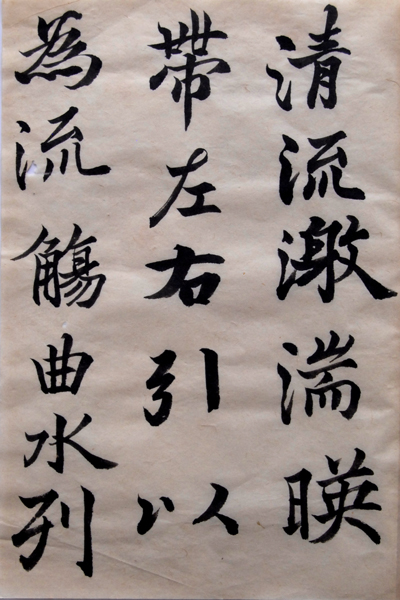 清流激湍暎
帶左右引以
為流觴曲水列